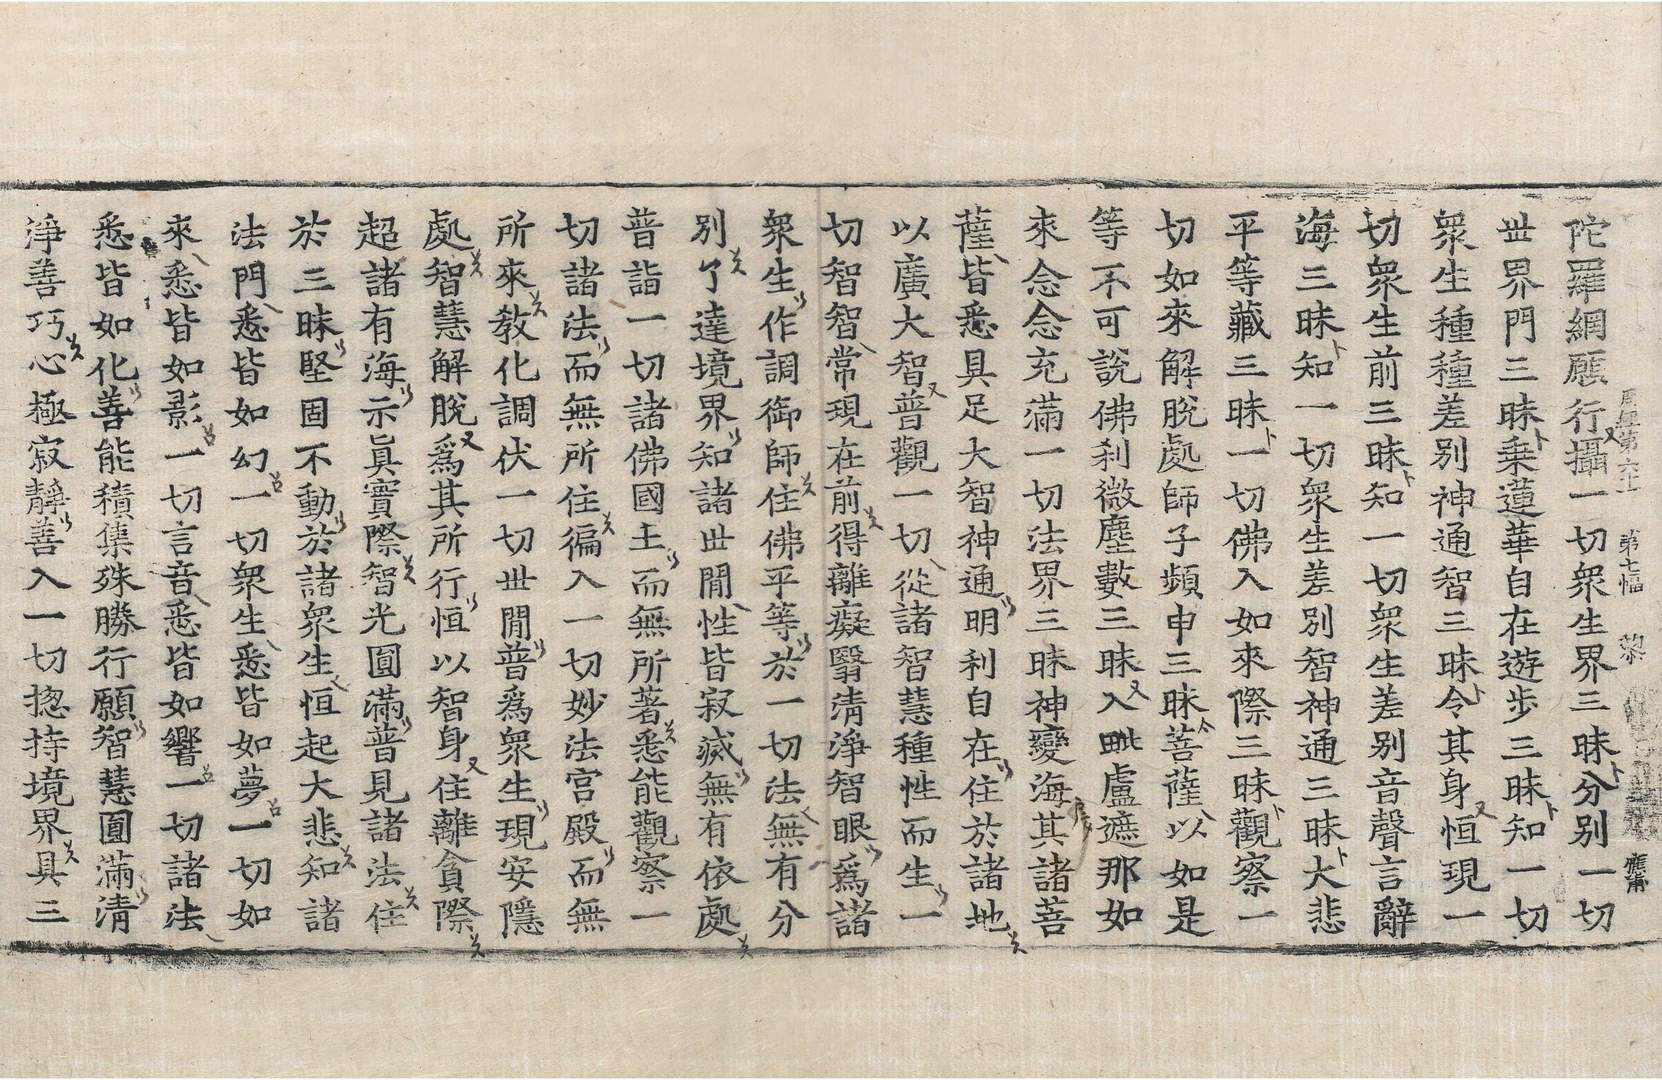 周經第六十　第七幅　黎
陀羅網願行攝一切衆生界三昧分別一切
世界門三昧乗蓮華自在遊步三昧知一切
衆生種種差别神通智三昧令其身恒現一
切衆生前三昧知一切衆生差别音聲言辭
海三昧知一切衆生差别智神通三昧大悲
平等藏三昧一切佛入如來際三昧觀察一
切如來解脫處師子頻申三昧菩薩以如是
等不可說佛刹微塵數三昧入毗盧遮那如
來念念充滿一切法界三昧神變海其諸菩
薩皆悉具足大智神通明利自在住於諸地
以廣大智普觀一切從諸智慧種性而生一
切智智常現在前得離癡翳清淨智眼爲諸
衆生作調御師住佛平等於一切法無有分
别了達境界知諸世間性皆寂滅無有依處
普詣一切諸佛國土而無所著悉能觀察一
切諸法而無所住徧入一切妙法宫殿而無
所來教化調伏一切世間普爲衆生現安隱
處智慧解脫爲其所行恒以智身住離貪際
超諸有海示眞實際智光圓滿普見諸法住
於三昧堅固不動於諸衆生恒起大悲知諸
法門悉皆如幻一切衆生悉皆如夢一切如
來悉皆如影一切言音悉皆如響一切諸法
悉皆如化善能積集殊勝行願智慧圓滿清
淨善巧心極寂静善入一切捴持境界具三